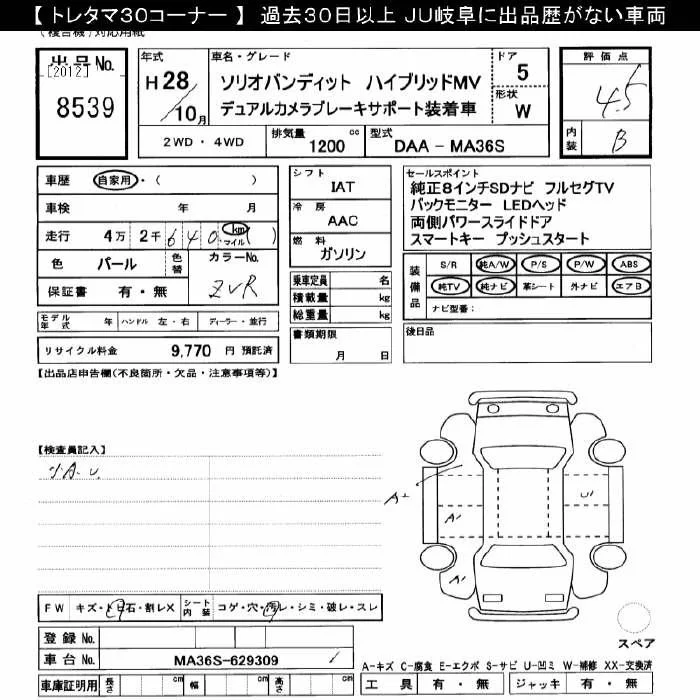 【 トレタマ30コーナー 】 過去30日以上 JU岐阜に出品歴がない車両
(複合機)対応用紙
出品No.
[2012]
8539
年式
H 28
10 月
車名・グレード
ソリオバンディット ハイブリッドMV
デュアルカメラブレーキサポート装着車
ドア
5
形状
W
2WD ・ 4WD
排気量
1200 cc
型式
DAA - MA36S
評価点
4.5
内装
B
車歴 自家用・( )
車検 年 月
走行 4万 2千 6 4 0 km マイル ( )
色 パール
色替
カラーNo.
ZVR
保証書 有・無
モデル年式 年 ハンドル 左・右 ディーラー・並行
リサイクル料金 9,770 円 預託済
シフト
IAT
冷房
AAC
燃料
ガソリン
乗車定員 名
積載量 kg
総重量 kg
書類期限
月 日
セールスポイント
純正8インチSDナビ フルセグTV
バックモニター LEDヘッド
両側パワースライドドア
スマートキー プッシュスタート
装備品
S/R 純A/W P/S P/W ABS
純TV 純ナビ 革シート 外ナビ エアB
ナビ型番:
後日品
【出品店申告欄(不良箇所・欠品・注意事項等)】
【検査員記入】
A・U
A1
A1
U1
A1
FW キズ・トビ石・割レX
シート内装 コゲ・穴・汚レ・シミ・破レ・スレ
登録No.
車台No. MA36S-629309
車庫証明用 長さ cm 幅 cm 高さ cm
スペア
A-キズ C-腐食 E-エクボ S-サビ U-凹ミ W-補修 XX-交換済
工具 有・無 ジャッキ 有・無